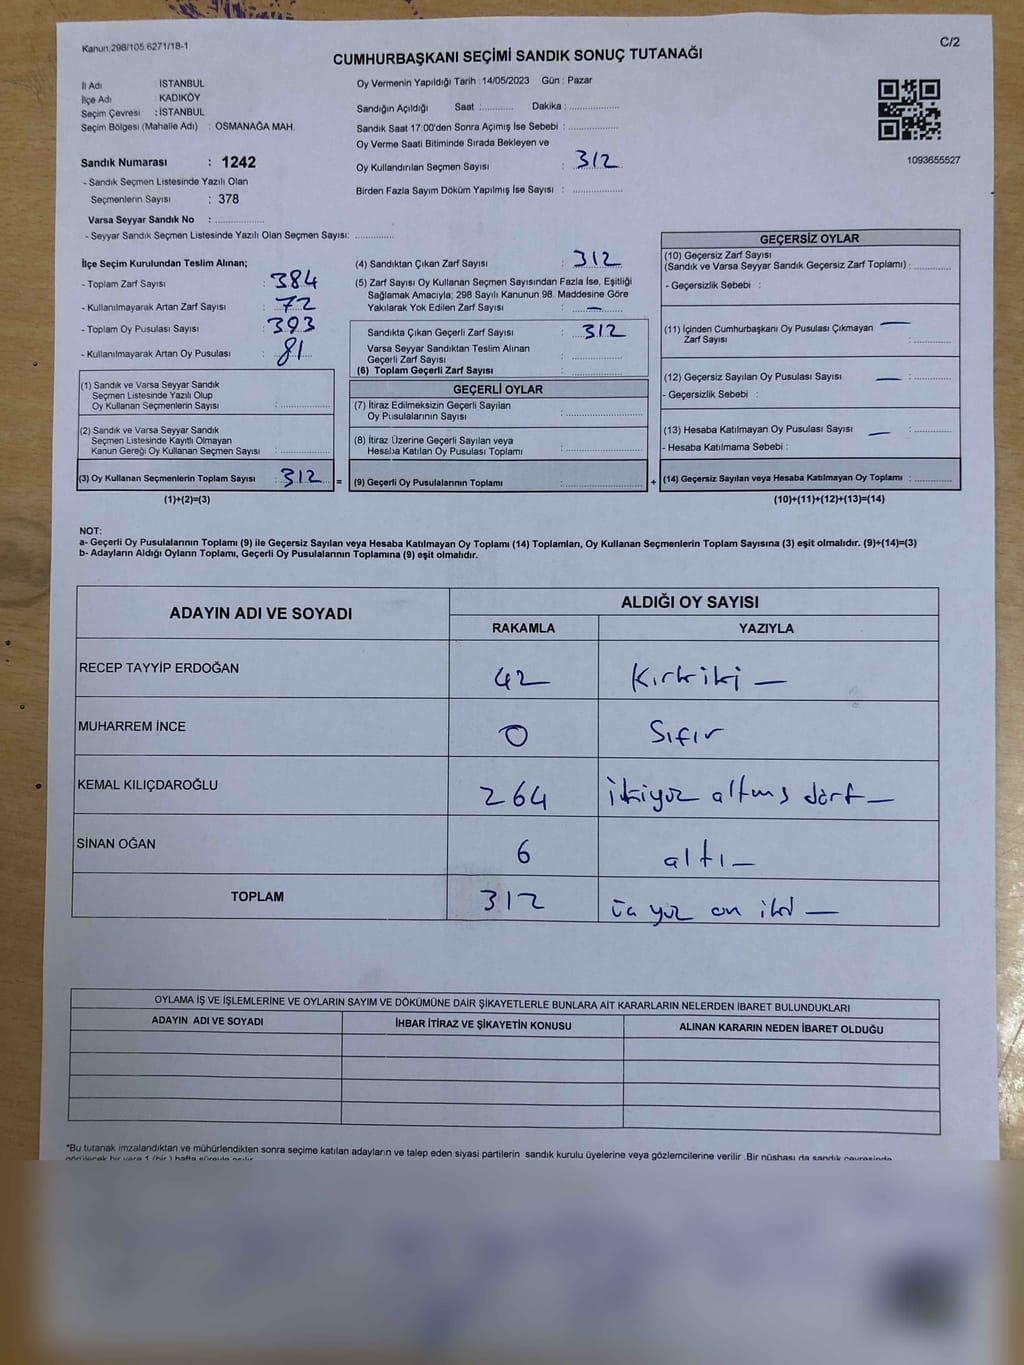 Kanun.298/105.6271/18-1
C/2
CUMHURBAŞKANI SEÇİMİ SANDIK SONUÇ TUTANAĞI
İl Adı İSTANBUL
İlçe Adı KADIKÖY
Seçim Çevresi : İSTANBUL
Seçim Bölgesi (Mahalle Adı) : OSMANAĞA MAH.
Sandık Numarası : 1242
- Sandık Seçmen Listesinde Yazılı Olan
Seçmenlerin Sayısı : 378
Varsa Seyyar Sandık No : ..................
- Seyyar Sandık Seçmen Listesinde Yazılı Olan Seçmen Sayısı: ..............
Oy Vermenin Yapıldığı Tarih : 14/05/2023 Gün : Pazar
Sandığın Açıldığı Saat :............ Dakika :..................
Sandık Saat 17:00'den Sonra Açımış İse Sebebi : ..................
Oy Verme Saati Bitiminde Sırada Bekleyen ve
Oy Kullandırılan Seçmen Sayısı : 312
Birden Fazla Sayım Döküm Yapılmış İse Sayısı : ..................
1093655527
İlçe Seçim Kurulundan Teslim Alınan;
- Toplam Zarf Sayısı : 384
- Kullanılmayarak Artan Zarf Sayısı : 72
- Toplam Oy Pusulası Sayısı : 393
- Kullanılmayarak Artan Oy Pusulası : 81
(1) Sandık ve Varsa Seyyar Sandık
Seçmen Listesinde Yazılı Olup
Oy Kullanan Seçmenlerin Sayısı : ..................
(2) Sandık ve Varsa Seyyar Sandık
Seçmen Listesinde Kayıtlı Olmayan
Kanun Gereği Oy Kullanan Seçmen Sayısı : ..................
(3) Oy Kullanan Seçmenlerin Toplam Sayısı : 312 =
(1)+(2)=(3)
(4) Sandıktan Çıkan Zarf Sayısı : 312
(5) Zarf Sayısı Oy Kullanan Seçmen Sayısından Fazla İse, Eşitliği
Sağlamak Amacıyla; 298 Sayılı Kanunun 98. Maddesine Göre
Yakılarak Yok Edilen Zarf Sayısı : —
Sandıkta Çıkan Geçerli Zarf Sayısı : 312
Varsa Seyyar Sandıktan Teslim Alınan
Geçerli Zarf Sayısı : ..................
(6) Toplam Geçerli Zarf Sayısı : ..................
GEÇERLİ OYLAR
(7) İtiraz Edilmeksizin Geçerli Sayılan
Oy Pusulalarının Sayısı : ..................
(8) İtiraz Üzerine Geçerli Sayılan veya
Hesaba Katılan Oy Pusulası Toplamı : ..................
(9) Geçerli Oy Pusulalarının Toplamı : .................. +
GEÇERSİZ OYLAR
(10) Geçersiz Zarf Sayısı
(Sandık ve Varsa Seyyar Sandık Geçersiz Zarf Toplamı) : ............
- Geçersizlik Sebebi :
(11) İçinden Cumhurbaşkanı Oy Pusulası Çıkmayan —
Zarf Sayısı : ............
(12) Geçersiz Sayılan Oy Pusulası Sayısı — : ............
- Geçersizlik Sebebi :
(13) Hesaba Katılmayan Oy Pusulası Sayısı — : ............
- Hesaba Katılmama Sebebi :
(14) Geçersiz Sayılan veya Hesaba Katılmayan Oy Toplamı : ............
(10)+(11)+(12)+(13)=(14)
NOT:
a- Geçerli Oy Pusulalarının Toplamı (9) ile Geçersiz Sayılan veya Hesaba Katılmayan Oy Toplamı (14) Toplamları, Oy Kullanan Seçmenlerin Toplam Sayısına (3) eşit olmalıdır. (9)+(14)=(3)
b- Adayların Aldığı Oyların Toplamı, Geçerli Oy Pusulalarının Toplamına (9) eşit olmalıdır.
ADAYIN ADI VE SOYADI ALDIĞI OY SAYISI
RAKAMLA YAZIYLA
RECEP TAYYİP ERDOĞAN 42 Kırkiki —
MUHARREM İNCE 0 Sıfır
KEMAL KILIÇDAROĞLU 264 ikiyüz altmış dört —
SİNAN OĞAN 6 altı —
TOPLAM 312 üç yüz on iki —
OYLAMA İŞ VE İŞLEMLERİNE VE OYLARIN SAYIM VE DÖKÜMÜNE DAİR ŞİKAYETLERLE BUNLARA AİT KARARLARIN NELERDEN İBARET BULUNDUKLARI
ADAYIN ADI VE SOYADI İHBAR İTİRAZ VE ŞİKAYETİN KONUSU ALINAN KARARIN NEDEN İBARET OLDUĞU
*Bu tutanak imzalandıktan ve mühürlendikten sonra seçime katılan adayların ve talep eden siyasi partilerin sandık kurulu üyelerine veya gözlemcilerine verilir .Bir nüshası da sandık çevresinde